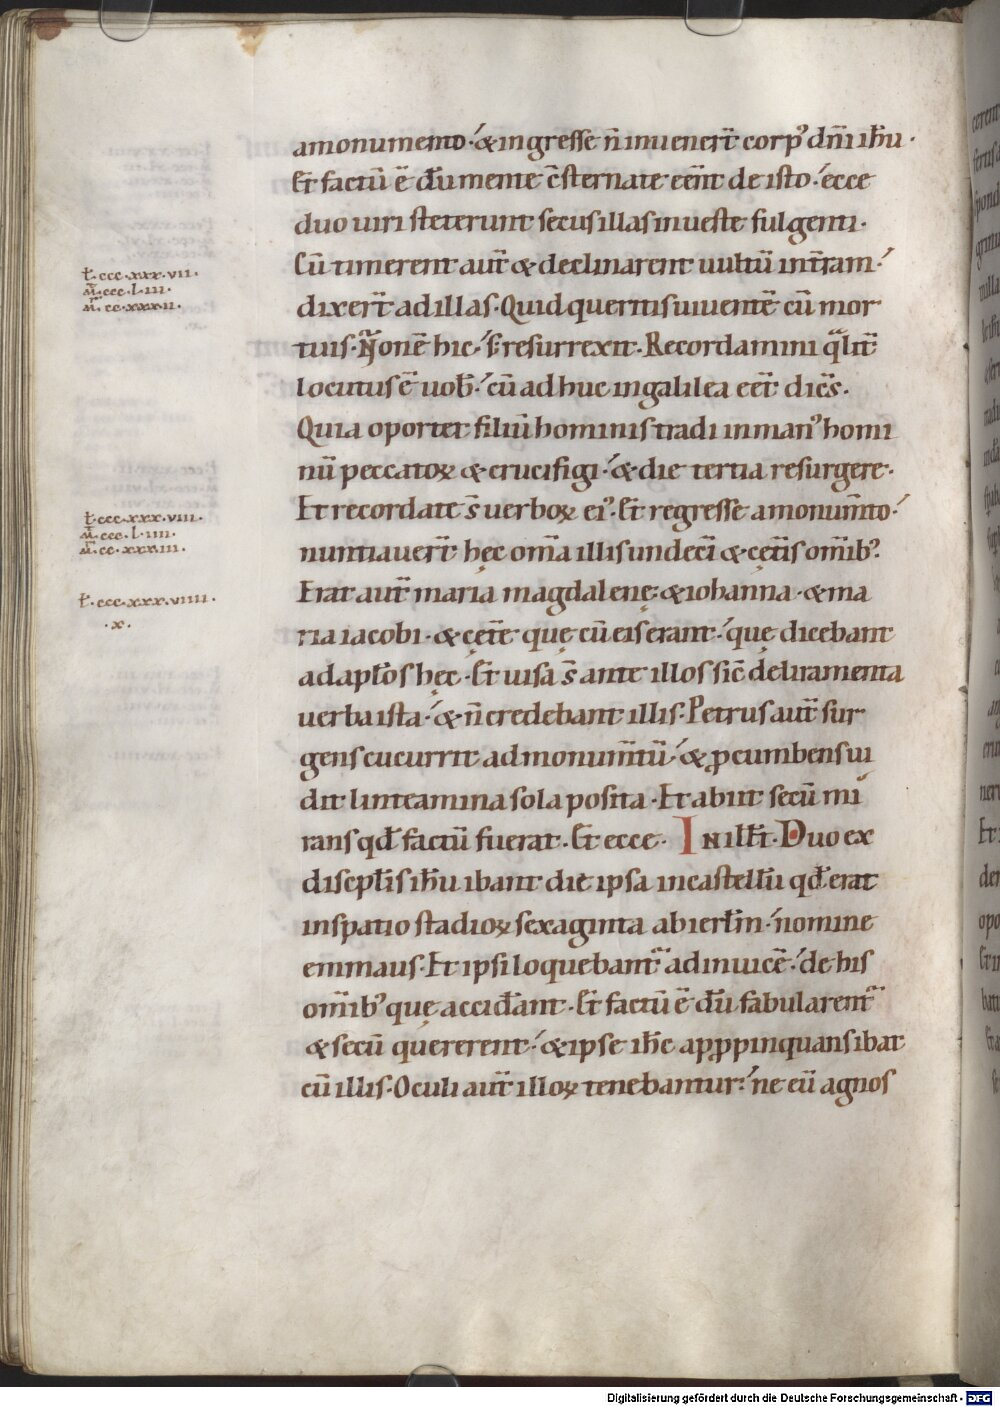 amonumento·́ &ingresse n̄ inuener̄t corpꝰ dn̄i ih̄u·
Et factū ē dū mente c̄sternate eēnt de isto·́ ecce
duo uiri steterunt secus illas inueste fulgenti·
Cū timerent aut̄ & declinarent uultū int̄ram·́
ꝉ·ccc·xxx·vii·
m̄·ccc·l·iii·
m̄·cc·xxxii·
dixer̄t adillas· Quid queritis uiuentē cū mor
tuis· N̄ onē hic·́ s; resurrexit· Recordamini qͣlit̄
locutus ē uob̄·́ cū adhuc ingalilea eēt dicēs·
Quia oportet filiū hominis tradi inmanꝰ homi
nū peccatoꝝ & crucifigi·́ & die tertia resurgere·
Et recordate s̄ uerboꝝ eiꝰ· Et regresse amonum̄to·́
ꝉ·ccc·xxx·viii·
m̄·ccc·l·iiii·
m̄·cc·xxxiii·
nuntiauer̄t hęc om̄a illis undecī & cęt̄is om̄ibꝰ·
Erat aut̄ maria magdalenę·&iohanna·&ma
ꝉ·ccc·xxx·viiii·
·x·
ria iacobi·& cęt̄e quę cū eis erant·́ quę dicebant
adapl̄os hęc· Et uisa s̄ ante illos sic̄ deliramenta
uerba ista·́ & n̄ credebant illis· Petrus aut̄ sur
gens cucurrit ad monum̄tū·́ & ꝓcumbens ui
dit linteamina sola posita· Et abiit secū mi
rans qd̄ factū fuerat· Et ecce· IN ill̄t· Duo ex
discipl̄is ih̄u ibant die ipsa incastellū qd̄ erat
inspatio stadioꝝ sexaginta abierl̄m·́ nomine
emmaus· Et ipsi loquebant᷑ adinuicē·́ de his
om̄ibꝰ quę accid̄ant· Et factū ē dū fabularent᷑
& secū quererent·́ & ipse ih̄c apꝓpinquans ibat
cū illis· Oculi aut̄ illoꝝ tenebantur·́ ne eū agnos
Digitalisierung gefördert durch die Deutsche Forschungsgemeinschaft - DFG